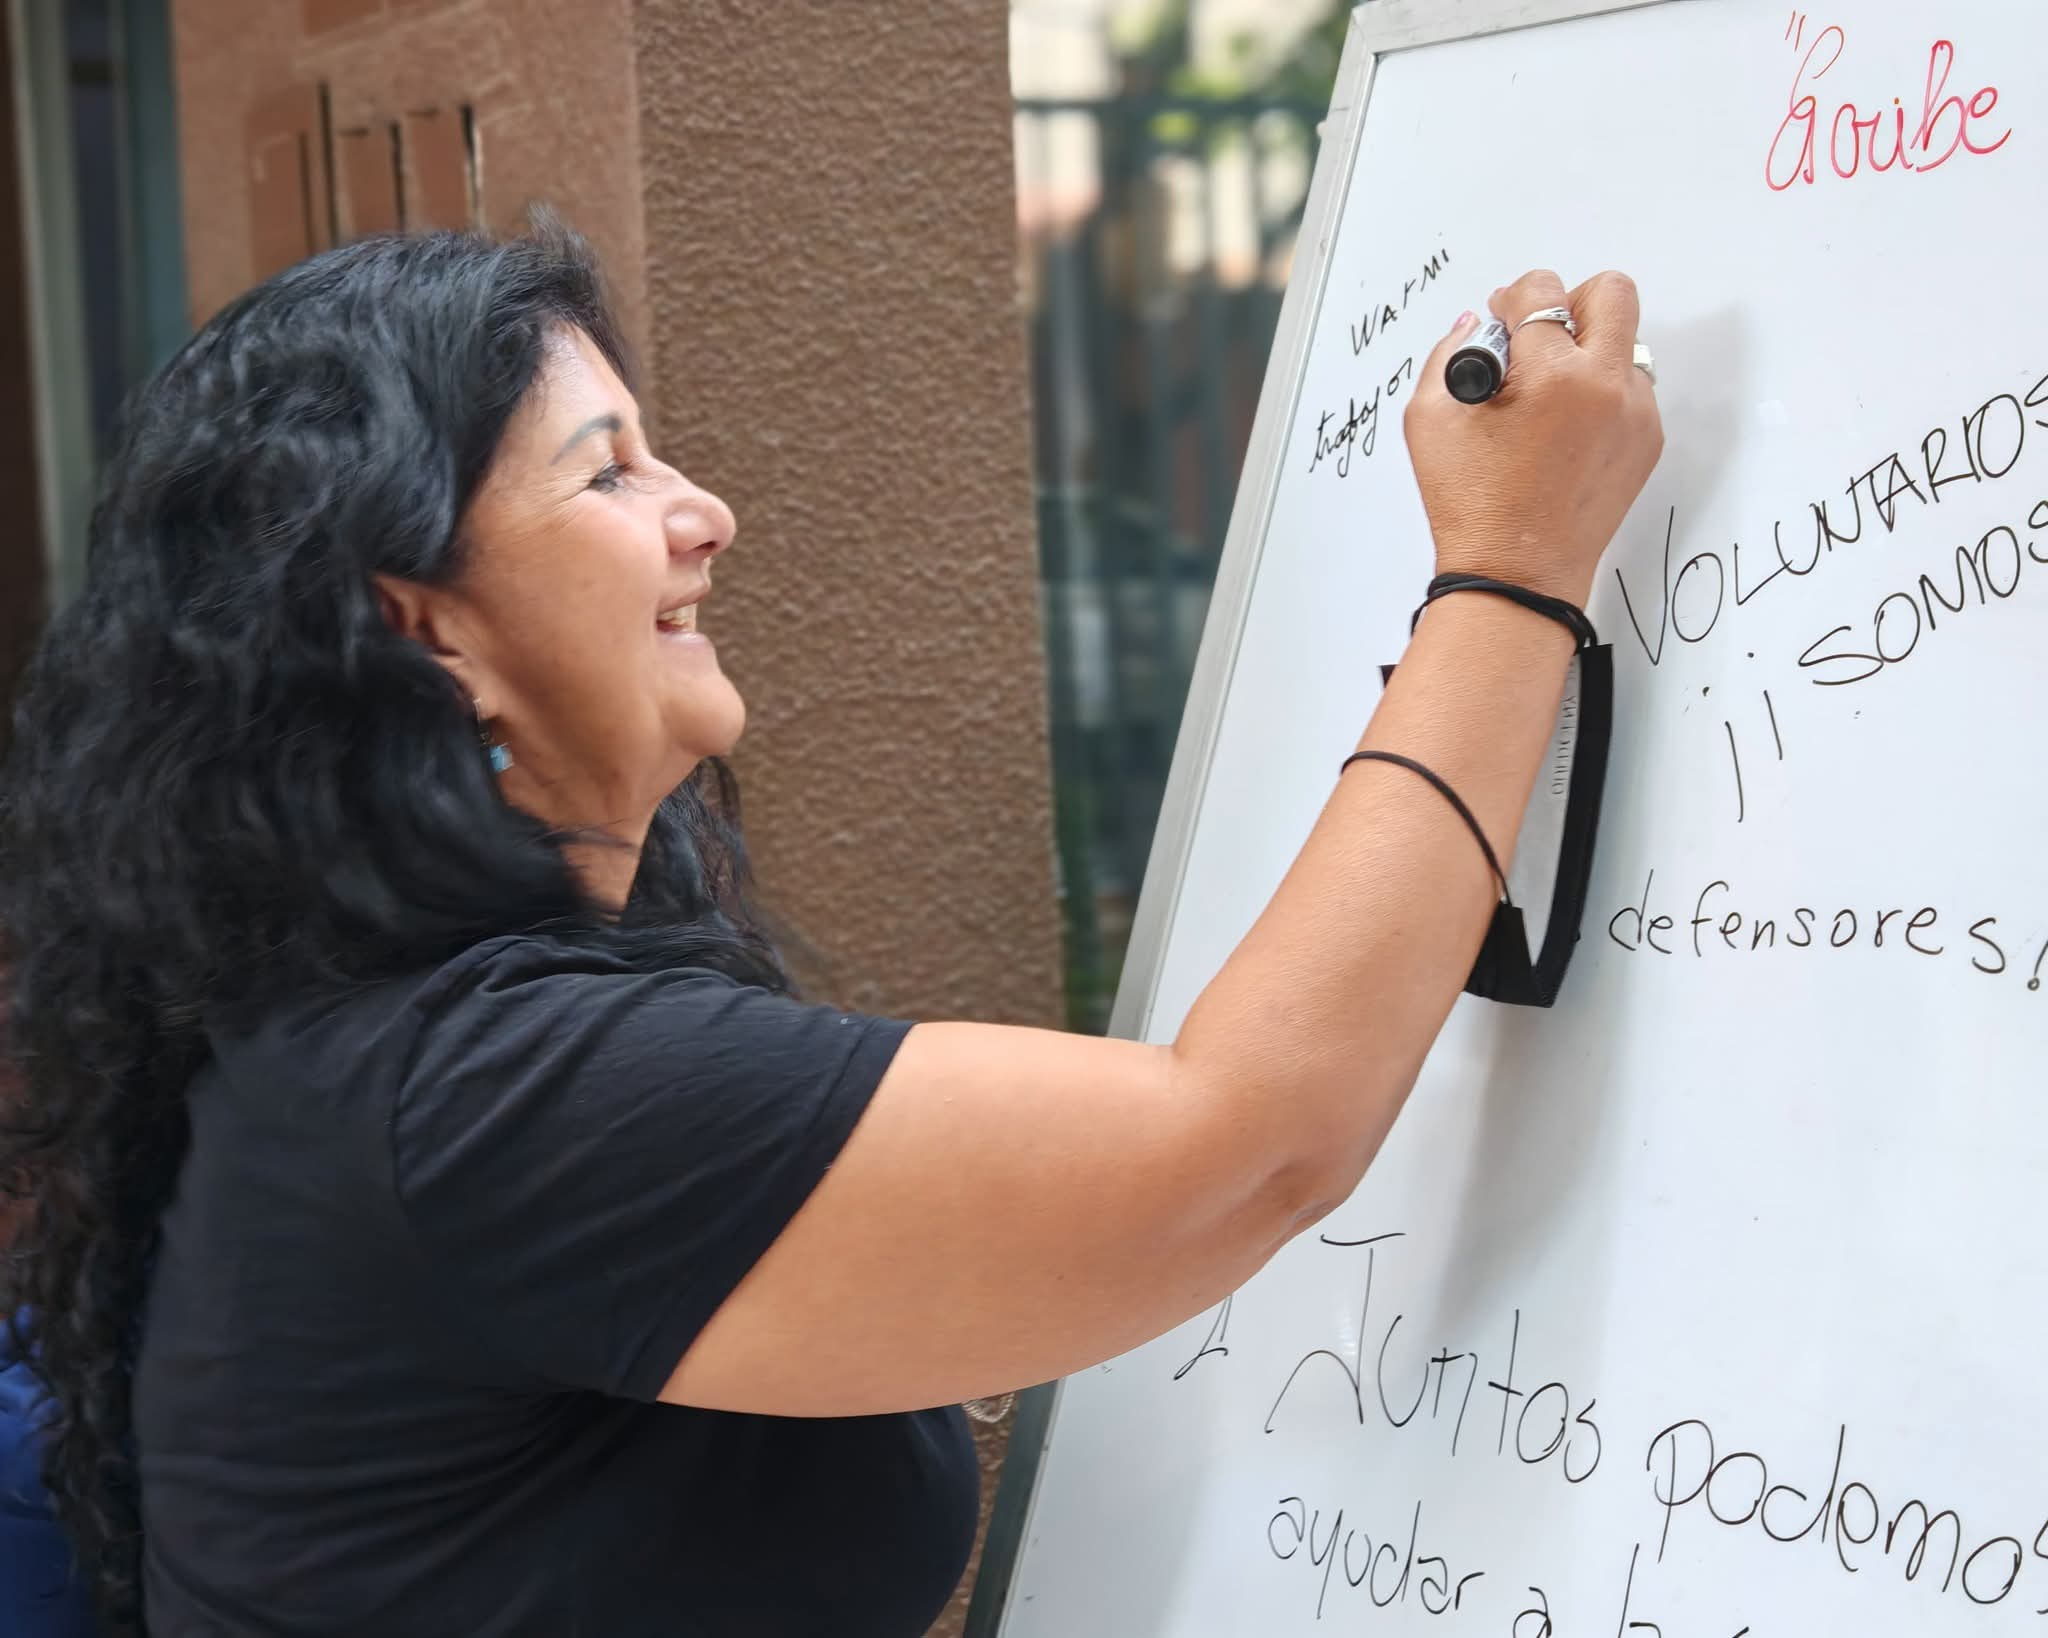 "Goribe
WARMI
trabajor
VOLUNTARIOS
SOMOS
¡¡
defensores!
Juntos podemos
ayudar a